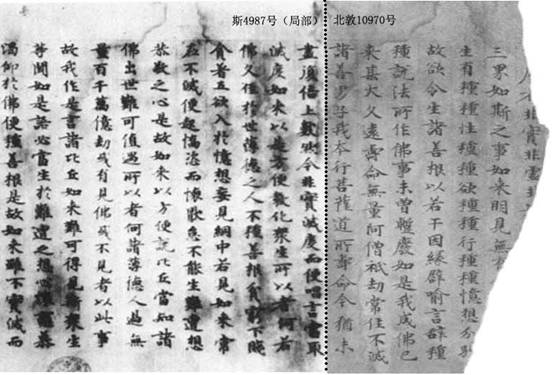 斯4987号（局部） 北敦10970号
非實非虛非
三界如斯之事如来明見無
生有種種性種種欲種種行種種憶想分別
故欲令生諸善根以若干因緣譬喻言辭種
種說法所作佛事未曾暫廢如是我成佛已
来甚大久遠壽命無量阿僧祇劫常住不滅
諸善男子我本行菩薩道所壽命今猶未
盡復倍上數然今非實滅度而便唱言當取
滅度如来以是方便教化衆生所以者何若
佛久住於世薄德之人不種善根貧窮下賤
貪著五欲入於憶想妄見網中若見如来常
在不滅便起憍恣而懷猒怠不能生難遭想
恭敬之心是故如来以方便說比丘當知諸
佛出世難可值遇所以者何諸薄德人過無
量百千萬億劫或有見佛或不見者以此事
故我作是言諸比丘如来難可得見斯衆生
等聞如是語必當生於難遭之想心懷戀慕
渴仰於佛便種善根是故如来雖不實滅而